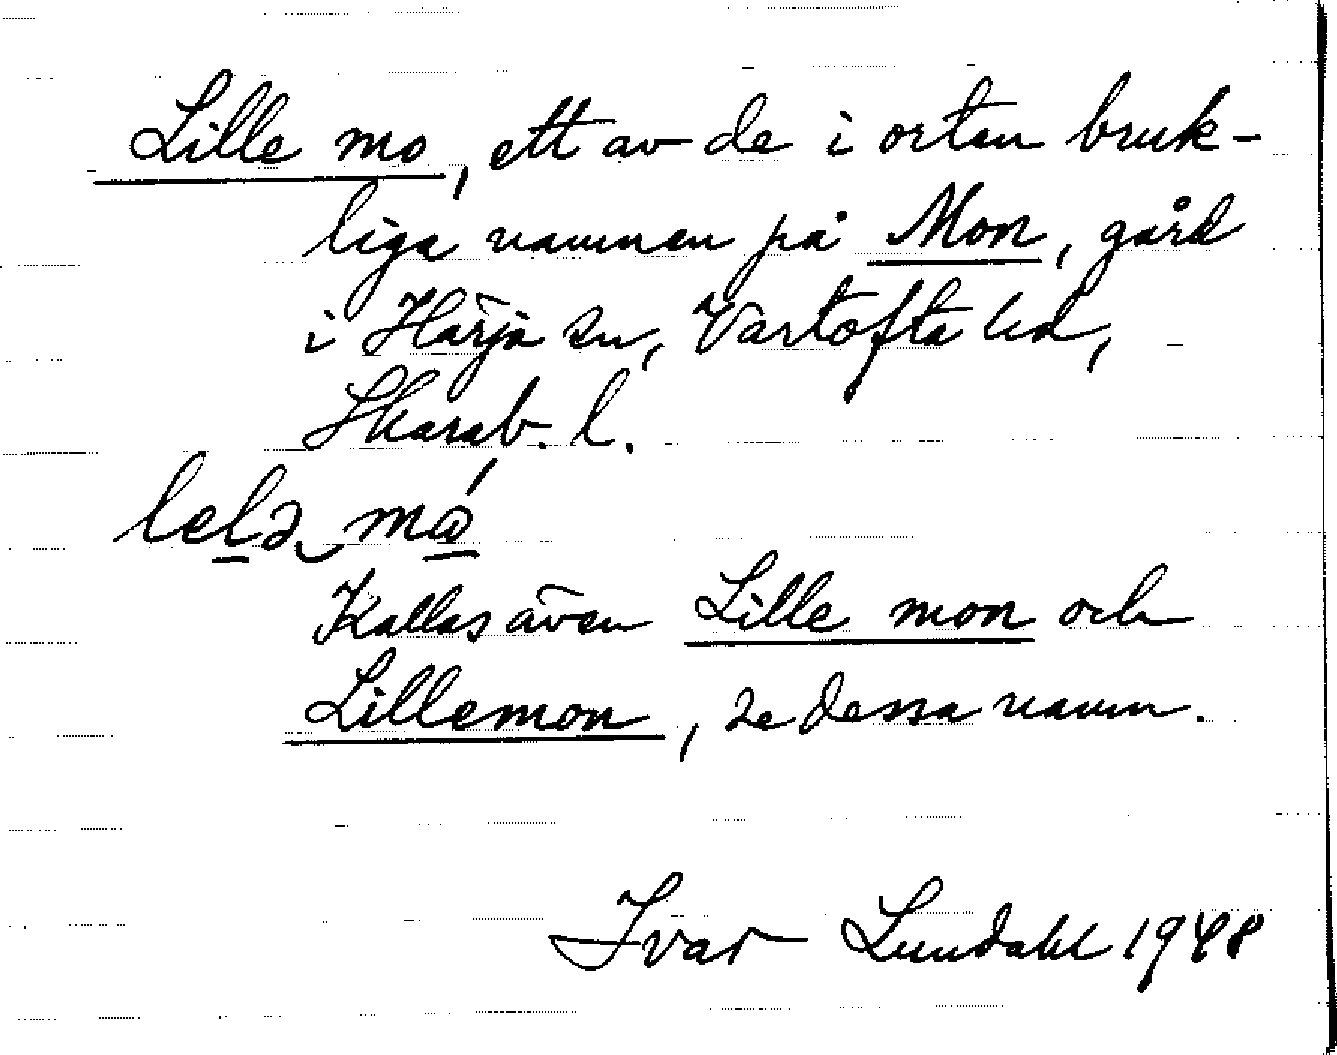 Lille mo, ett av de i orten bruk-
liga namnen på Mon, gård
i Härja sn, Vartofta hd,
Skarab. l.
Kallas även Lille mon och
Lillemon, se dessa namn.
Ivar Lundahl 1948